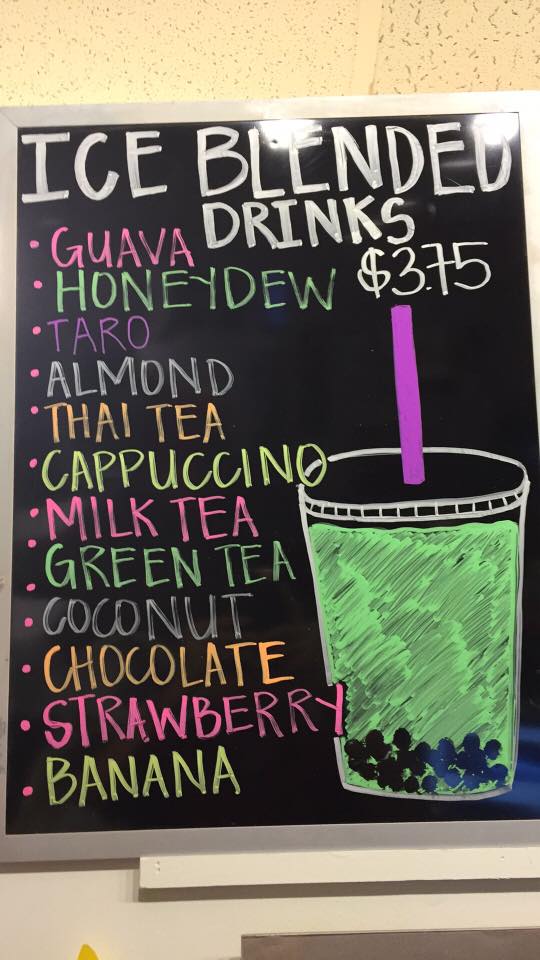 ICE BLENDED
DRINKS
$3.75
• GUAVA
• HONEYDEW
• TARO
• ALMOND
• THAI TEA
• CAPPUCCINO
• MILK TEA
• GREEN TEA
• COCONUT
• CHOCOLATE
• STRAWBERRY
• BANANA